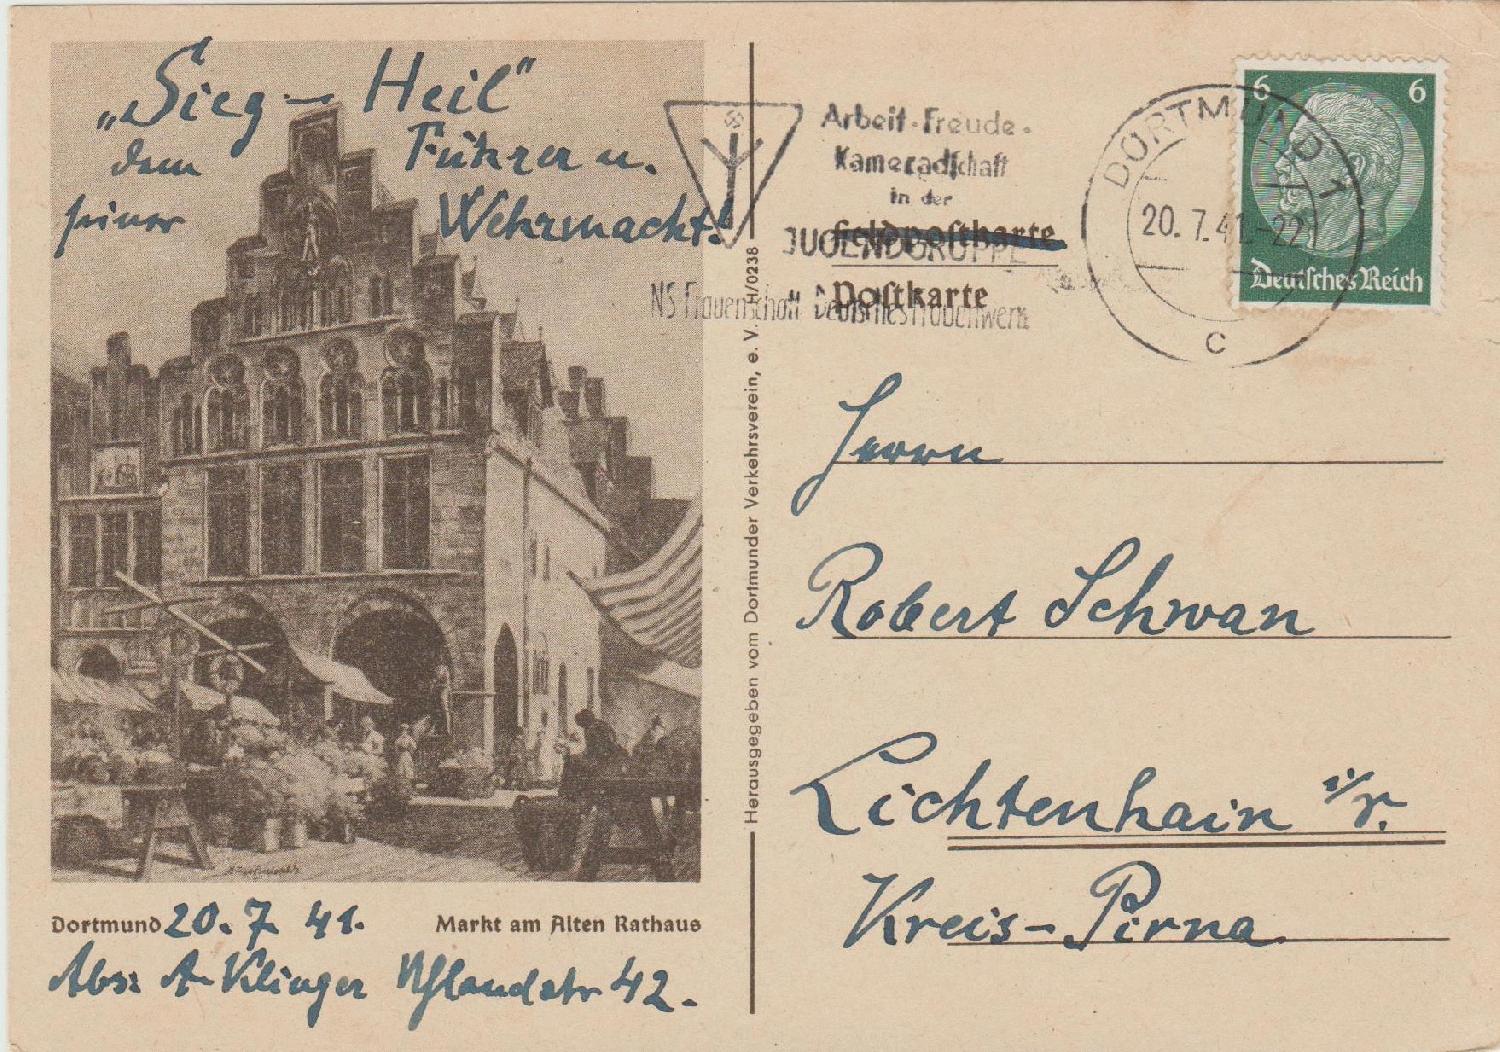 „Sieg - Heil"
dem Führer u.
seiner Wehrmacht!
Arbeit-Freude-
Kameradschaft
in der
JUGENDGRUPPE
Feldpostkarte
NS Frauenschaft Deutsches Frauenwerk
Postkarte
DORTMUND 1
20.7.41.-22
c
6 6
Deutsches Reich
Herausgegeben vom Dortmunder Verkehrsverein, e. V. H/0238
Herrn
Robert Schwan
Lichtenhain i/r.
Kreis-Pirna
Dortmund 20. 7. 41.
Markt am Alten Rathaus
Abs: A. Klinger Uhlandstr 42.